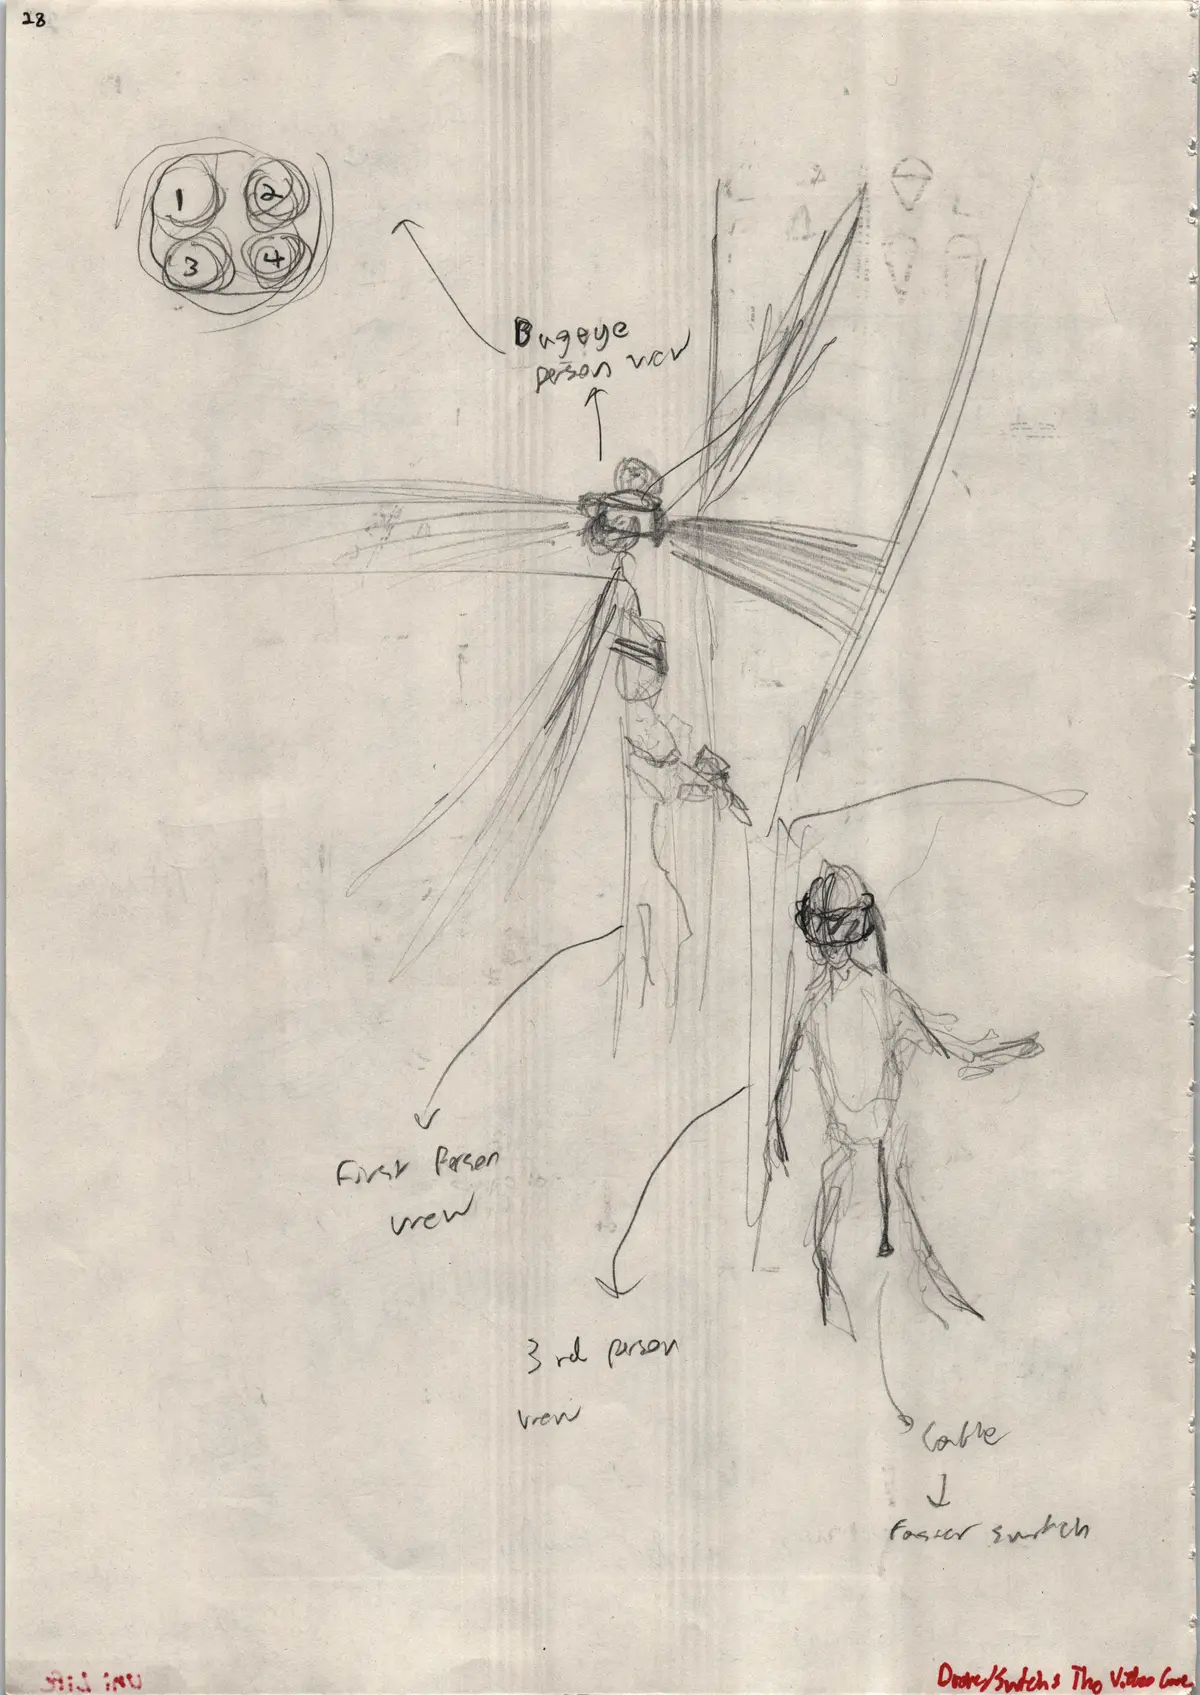 28
1 2
3 4
Bugeye
person view
First Person
view
3rd person
view
Cable
Faster switch
Uni Life
The Video